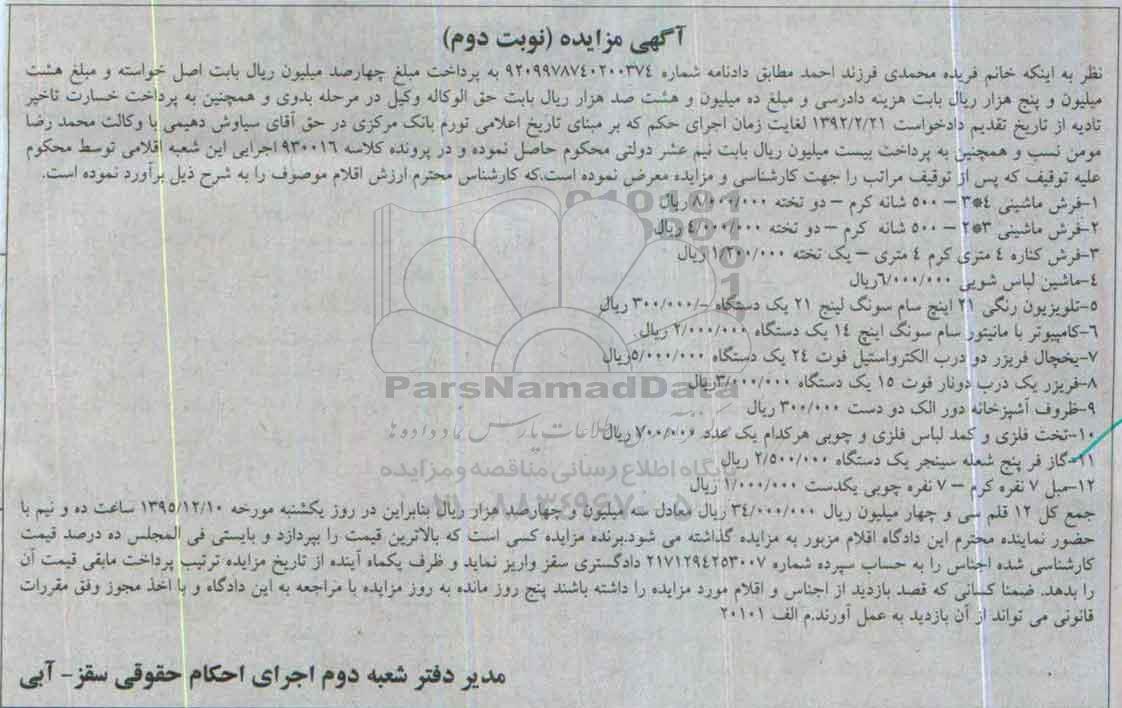 آگهی مزایده (نوبت دوم)
نظر به اینکه خانم فریده محمدی فرزند احمد مطابق دادنامه شماره ۹۲۰۹۹۷۸۷۴۰۲۰۰۳۷۴ به پرداخت مبلغ چهارصد میلیون ریال بابت اصل خواسته و مبلغ هشت
میلیون و پنج هزار ریال بابت هزینه دادرسی و مبلغ ده میلیون و هشت صد هزار ریال بابت حق الوکاله وکیل در مرحله بدوی و همچنین به پرداخت خسارت تاخیر
تادیه از تاریخ تقدیم دادخواست ۱۳۹۲/۲/۲۱ لغایت زمان اجرای حکم که بر مبنای تاریخ اعلامی تورم بانک مرکزی در حق آقای سیاوش دهیمی با وکالت محمد رضا
مومن نسب و همچنین به پرداخت بیست میلیون ریال بابت نیم عشر دولتی محکوم حاصل نموده و در پرونده کلاسه ۹۳۰۰۱۶ اجرایی این شعبه اقلامی توسط محکوم
علیه توقیف که پس از توقیف مراتب را جهت کارشناسی و مزایده معرض نموده است.که کارشناس محترم ارزش اقلام موصوف را به شرح ذیل برآورد نموده است.
۱-فرش ماشینی ۴*۳ – ۵۰۰ شانه کرم – دو تخته ۸/۰۰۰/۰۰۰ ریال
۲-فرش ماشینی ۳*۲ – ۵۰۰ شانه کرم – دو تخته ۴/۰۰۰/۰۰۰ ریال
۳-فرش کناره ۴ متری کرم ۴ متری – یک تخته ۱/۲۰۰/۰۰۰ ریال
۴-ماشین لباس شویی ۶/۰۰۰/۰۰۰ریال
۵-تلویزیون رنگی ۲۱ اینچ سام سونگ لینج ۲۱ یک دستگاه -/۳۰۰/۰۰۰ ریال
۶-کامپیوتر با مانیتور سام سونگ اینچ ۱۴ یک دستگاه ۲/۰۰۰/۰۰۰ ریال.
۷-یخچال فریزر دو درب الکترواستیل فوت ۲۴ یک دستگاه ۵/۰۰۰/۰۰۰ریال
۸-فریزر یک درب دونار فوت ۱۵ یک دستگاه ۳/۰۰۰/۰۰۰ریال
۹-ظروف آشپزخانه دور الک دو دست ۳۰۰/۰۰۰ ریال
۱۰-تخت فلزی و کمد لباس فلزی و چوبی هرکدام یک عدد ۷۰۰/۰۰۰ ریال
۱۱-گاز فر پنج شعله سینجر یک دستگاه ۲/۵۰۰/۰۰۰ ریال
۱۲-مبل ۷ نفره کرم – ۷ نفره چوبی یکدست ۱/۰۰۰/۰۰۰ ریال
جمع کل ۱۲ قلم سی و چهار میلیون ریال ۳۴/۰۰۰/۰۰۰ ریال معادل سه میلیون و چهارصد هزار ریال بنابراین در روز یکشنبه مورخه ۱۳۹۵/۱۲/۱۰ ساعت ده و نیم با
حضور نماینده محترم این دادگاه اقلام مزبور به مزایده گذاشته می شود.برنده مزایده کسی است که بالاترین قیمت را بپردازد و بایستی فی المجلس ده درصد قیمت
کارشناسی شده اجناس را به حساب سپرده شماره ۲۱۷۱۲۹۴۲۵۳۰۰۷ دادگستری سقز واریز نماید و ظرف یکماه آینده از تاریخ مزایده ترتیب پرداخت مابقی قیمت آن
را بدهد. ضمنا کسانی که قصد بازدید از اجناس و اقلام مورد مزایده را داشته باشند پنج روز مانده به روز مزایده با مراجعه به این دادگاه و با اخذ مجوز وفق مقررات
قانونی می تواند از آن بازدید به عمل آورند.م الف ۲۰۱۰۱
مدیر دفتر شعبه دوم اجرای احکام حقوقی سقز- آبی
ParsNamadData
پایگاه اطلاع رسانی مناقصه و مزایده